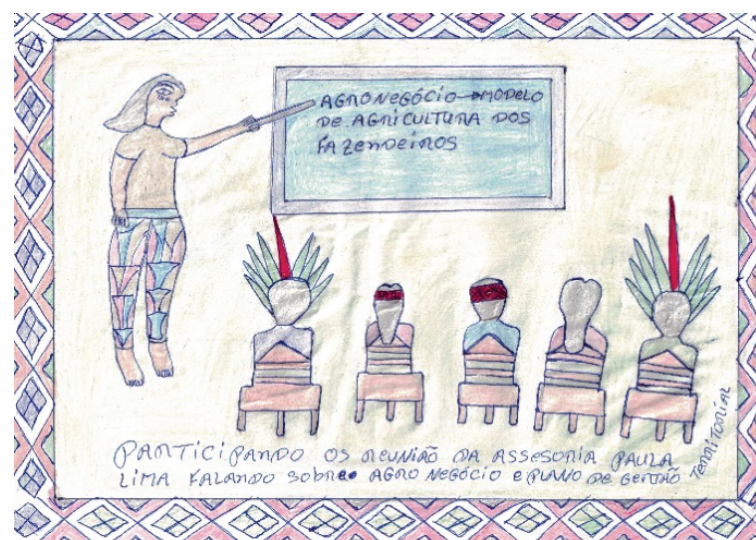 AGRONEGÓCIO → MODELO
DE AGRICULTURA DOS
FAZENDEIROS
PARTICIPANDO OS REUNIÃO DA ASSESORIA PAULA
LIMA FALANDO SOBRE AGRO NEGÓCIO E PLANO DE GERTÃO
TERRITORIAL